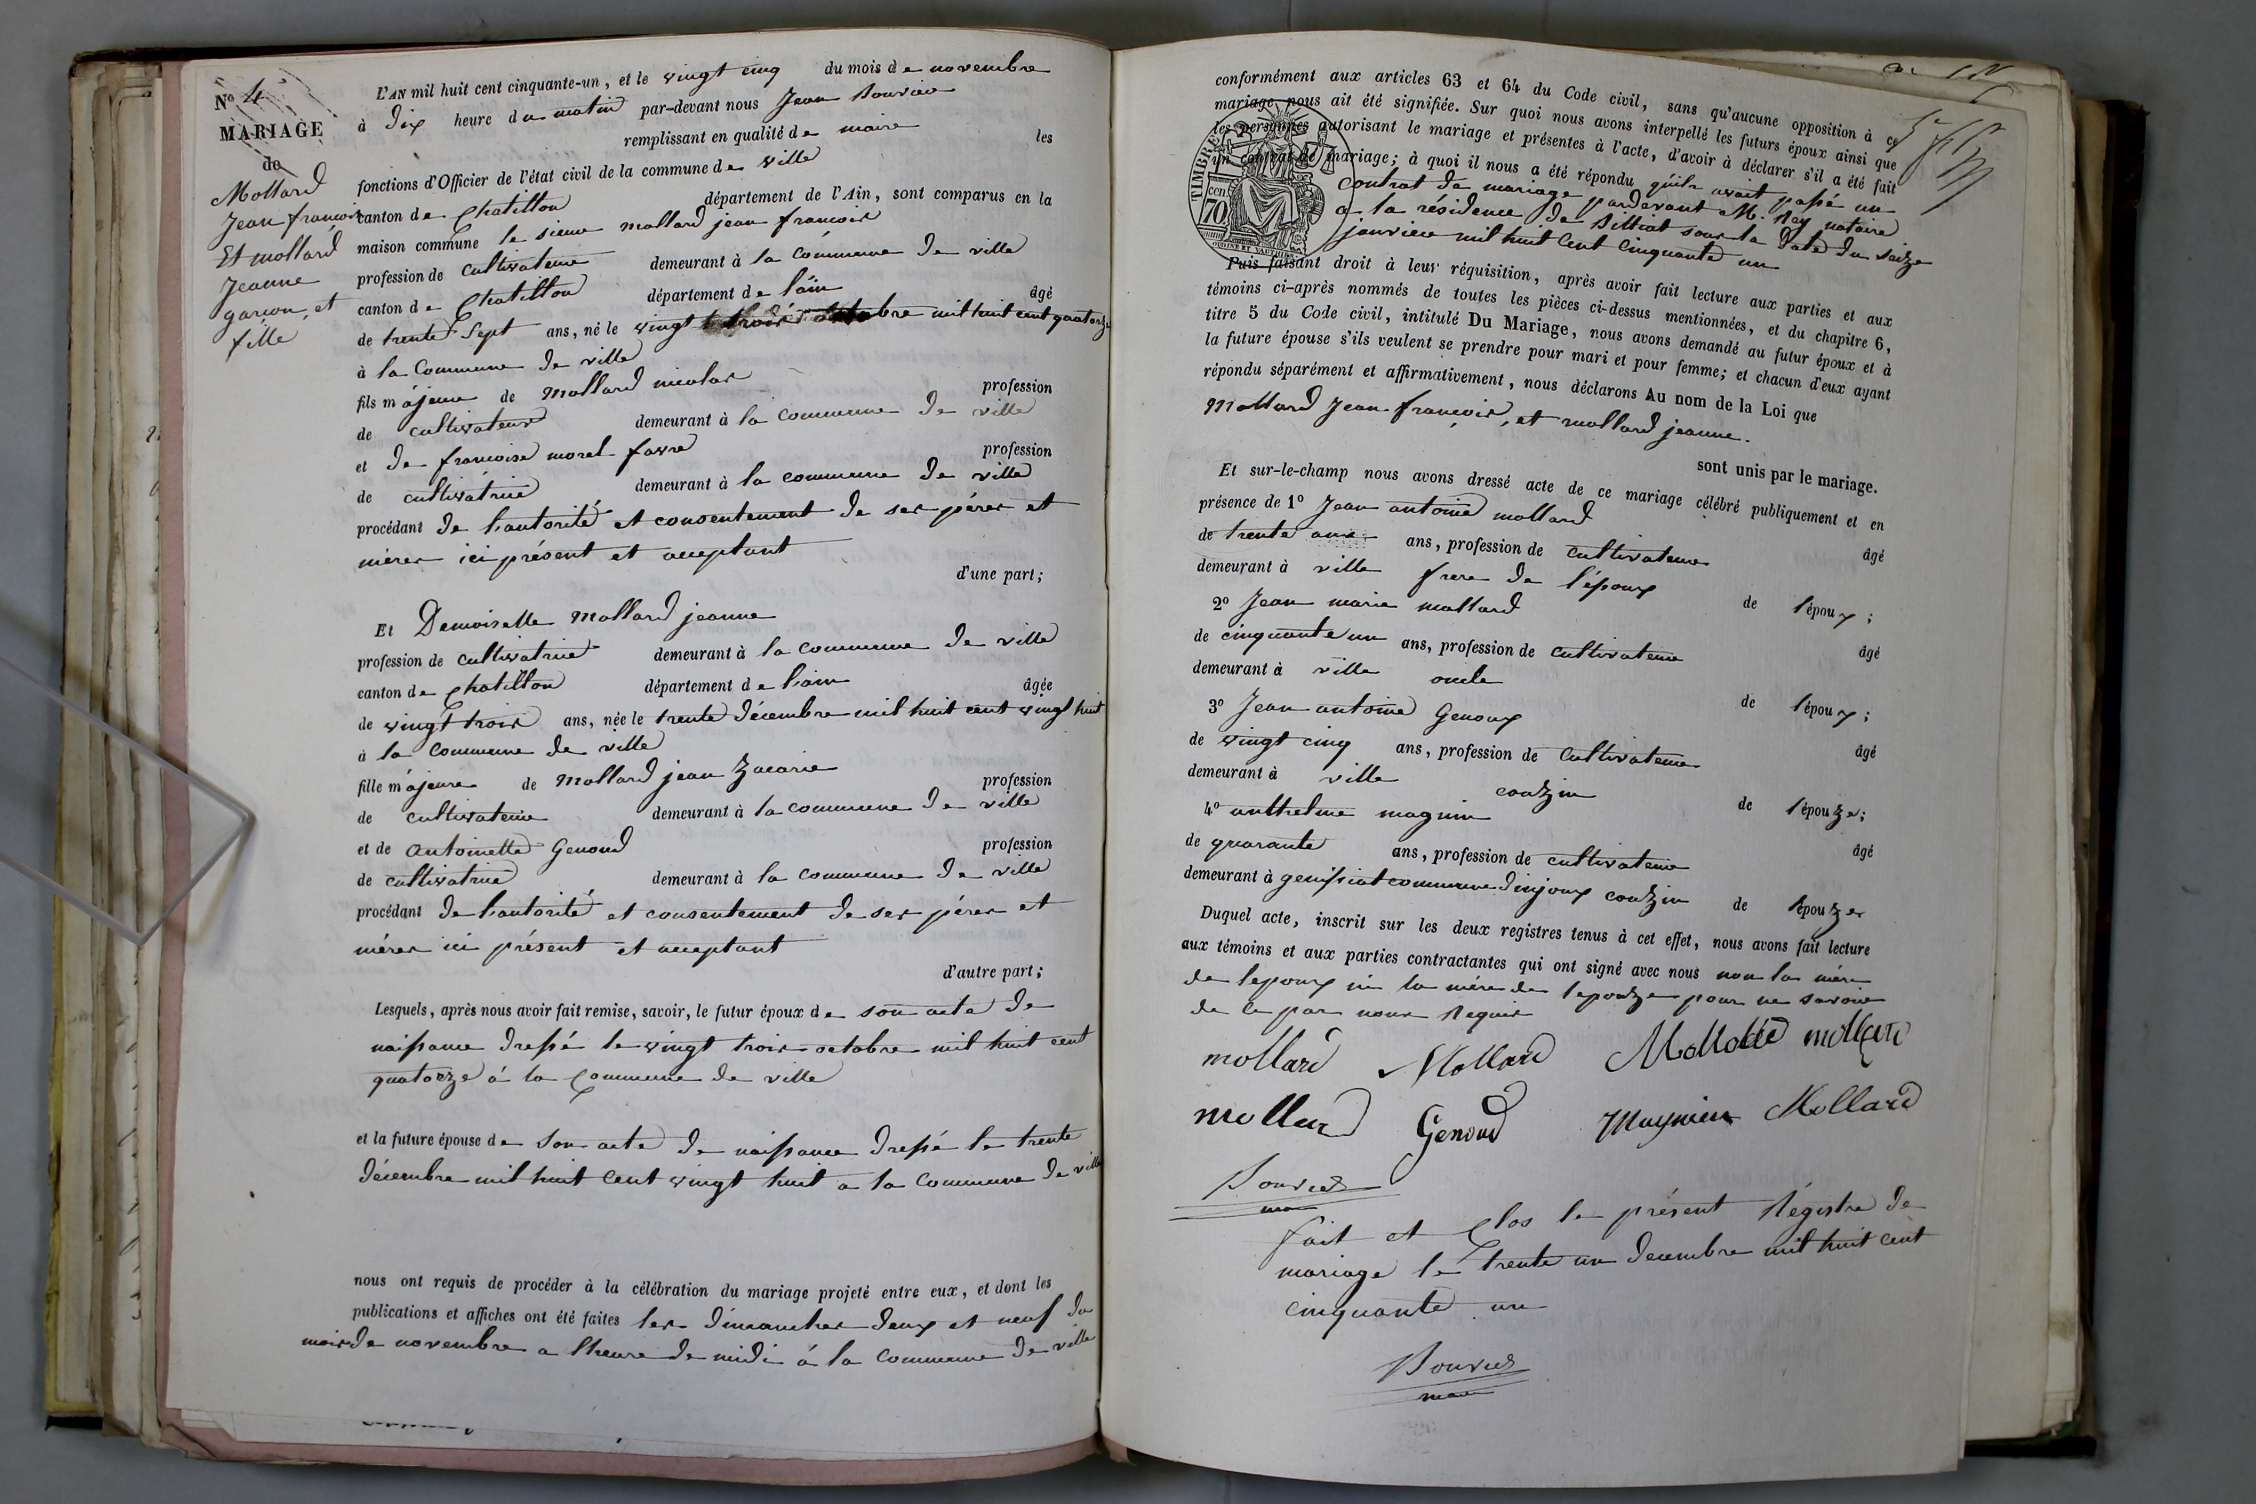 Nº 4
MARIAGE
de
Mollard
Jean françois
Et mollard
Jeanne
garcon, et
fille
L'AN mil huit cent cinquante-un, et le vingt cinq du mois de novembre
à dix heure du matin par-devant nous Jean Bouvier
remplissant en qualité de maire les
fonctions d'Officier de l'état civil de la commune de ville
canton de Chatillon département de l'Ain, sont comparus en la
maison commune le sieur mollard jean francois
profession de cultivateur demeurant à la commune de ville
canton de Chatillon département de l'ain âgé
de trente sept ans, né le vingt trois octobre mil huit cent quatorze
à la Commune de ville
fils majeur de mollard nicolas profession
de cultivateur demeurant à la commune de ville
et de francoise morel favre profession
de cultivatrice demeurant à la commune de ville
procédant de l'autorité et consentement de ses péres et
méres ici présent et acceptant
d'une part;
Et Demoiselle mollard jeanne
profession de cultivatrice demeurant à la commune de ville
canton de Chatillon département de l'ain âgée
de vingt trois ans, née le trente décembre mil huit cent vingt huit
à la Commune de ville
fille majeure de mollard jean Zacarie profession
de cultivateur demeurant à la commune de ville
et de antoinette Genoud profession
de cultivatrice demeurant à la commune de ville
procédant de l'autorité et consentement de ses péres et
méres ici présent et acceptant
d'autre part;
Lesquels, après nous avoir fait remise, savoir, le futur époux de son acte de
naissance dressé le vingt trois octobre mil huit cent
quatorze à la Commune de ville
et la future épouse de son acte de naissance dressé le trente
décembre mil huit cent vingt huit a la commune de ville
nous ont requis de procéder à la célébration du mariage projeté entre eux, et dont les
publications et affiches ont été faites les dimanches deux et neuf du
mois de novembre a lheure de midi à la commune de ville
conformément aux articles 63 et 64 du Code civil, sans qu'aucune opposition à ce
mariage nous ait été signifiée. Sur quoi nous avons interpellé les futurs époux ainsi que
les personnes autorisant le mariage et présentes à l'acte, d'avoir à déclarer s'il a été fait
un contrat de mariage; à quoi il nous a été répondu qu'ils avait passé un
contrat de mariage pardevant M. Rey notaire
a la résidence de Billiat sous la date du seize
janvier mil huit cent cinquante un
TIMBRE
cen.
70
Puis faisant droit à leur réquisition, après avoir fait lecture aux parties et aux
témoins ci-après nommés de toutes les pièces ci-dessus mentionnées, et du chapitre 6,
titre 5 du Code civil, intitulé Du Mariage, nous avons demandé au futur époux et à
la future épouse s'ils veulent se prendre pour mari et pour femme; et chacun d'eux ayant
répondu séparément et affirmativement, nous déclarons Au nom de la Loi que
Mollard Jean françois, et mollard jeanne.
sont unis par le mariage.
Et sur-le-champ nous avons dressé acte de ce mariage célébré publiquement et en
présence de 1º Jean antoine mollard âgé
de trente ans, profession de cultivateur
demeurant à ville frere de l'époux de l'époux;
2º Jean marie mollard âgé
de cinquante un ans, profession de cultivateur
demeurant à ville oncle de l'époux;
3º Jean antoine Genoux âgé
de vingt cinq ans, profession de cultivateur
demeurant à ville couzin de l'épouze;
4º anthelme magnin âgé
de quarante ans, profession de cultivateur
demeurant à genissiat commune dinjoux couzin de lépouze
Duquel acte, inscrit sur les deux registres tenus à cet effet, nous avons fait lecture
aux témoins et aux parties contractantes qui ont signé avec nous non la mére
de lepoux ni la mére de lepouze pour ne savoir
de ce par nous Requis
mollard Mollard Mollard mollard
mollard Genoud Magnien Mollard
Bouvier
maire
fait et Clos le présent Régistre de
mariage le trente un decembre mil huit cent
cinquante un
Bouvier
maire